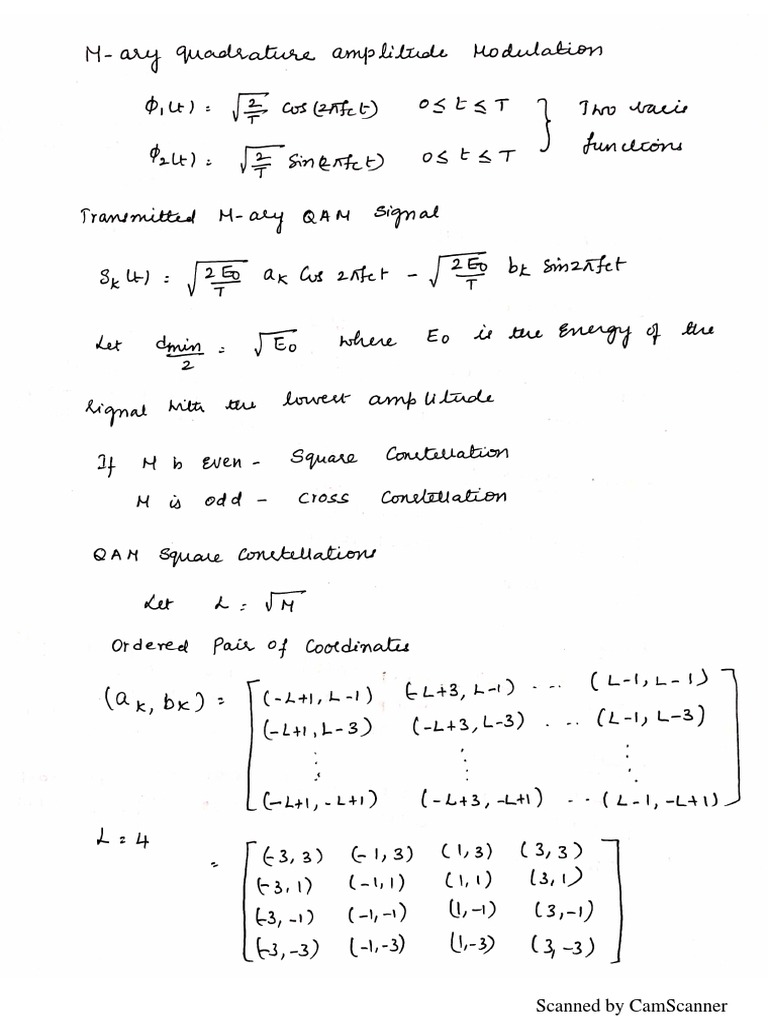 M-ary quadrature amplitude Modulation
ϕ₁(t) = √(2/T) cos(2πfct) 0 ≤ t ≤ T } Two basis
ϕ₂(t) = √(2/T) Sin(2πfct) 0 ≤ t ≤ T functions
Transmitted M-ary QAM Signal
Sₖ(t) = √(2E₀/T) aₖ Cos 2πfct - √(2E₀/T) bₖ Sin2πfct
Let dmin/2 = √E₀ where E₀ is the Energy of the
Signal with the lowest amplitude
If M is even - Square Constellation
M is odd - Cross Constellation
QAM Square Constellations
Let L = √M
Ordered Pair of Coordinates
(aₖ, bₖ) = [(-L+1, L-1) (-L+3, L-1) ... (L-1, L-1)
(-L+1, L-3) (-L+3, L-3) ... (L-1, L-3)
⋮ ⋮ ⋮
(-L+1, -L+1) (-L+3, -L+1) .. (L-1, -L+1)]
L = 4
= [(-3, 3) (-1, 3) (1, 3) (3, 3)
(-3, 1) (-1, 1) (1, 1) (3, 1)
(-3, -1) (-1, -1) (1, -1) (3, -1)
(-3, -3) (-1, -3) (1, -3) (3, -3)]
Scanned by CamScanner